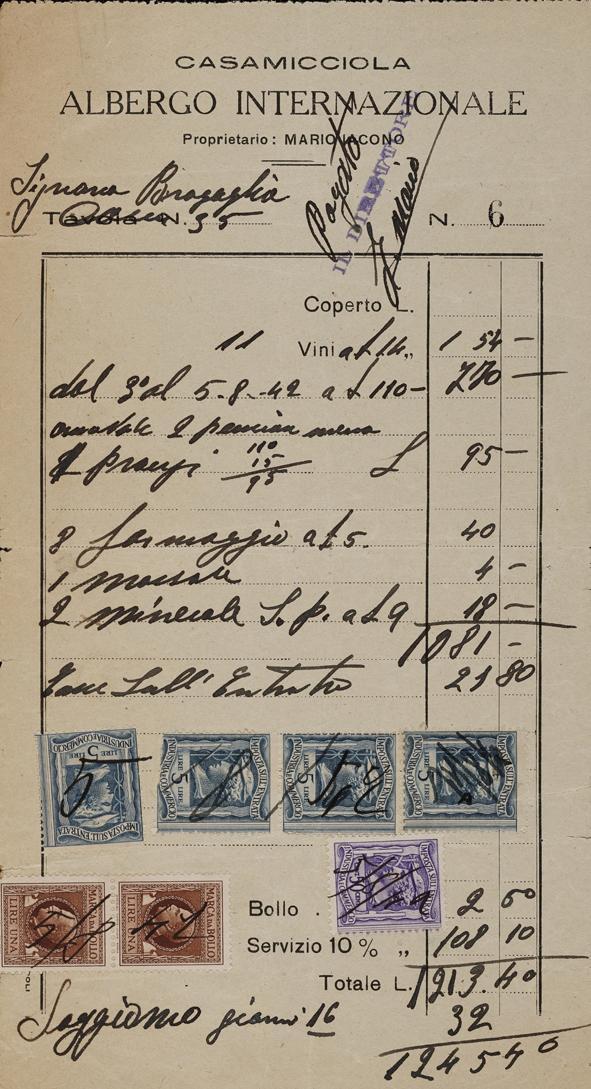 CASAMICCIOLA
ALBERGO INTERNAZIONALE
Proprietario: MARIO IACONO
Signora Bragaglia
Pagato
IL DIRETTORE
Tavola N. 35
N. 6
Coperto L.
11 Vini a £ 14 „ 154 —
dal 3 al 5-8-42 a £ 110 — 770 —
2 pensioni meno
1 pranzi 110 15 95 £ 95 —
8 formaggio a £ 5. 40
1 marsala 4 —
2 minerale S. p. a £ 9 18 —
1081 —
Tassa Sull' Entrata 21 80
IMPOSTA SULL'ENTRATA
INDUSTRIA E COMMERCIO
LIRE 5 LIRE
IMPOSTA SULL'ENTRATA
INDUSTRIA E COMMERCIO
LIRE 5 LIRE
5 8 42
IMPOSTA SULL'ENTRATA
INDUSTRIA E COMMERCIO
LIRE 5 LIRE
IMPOSTA SULL'ENTRATA
INDUSTRIA E COMMERCIO
LIRE 5 LIRE
IMPOSTA SULL'ENTRATA
INDUSTRIA E COMMERCIO
MARCA DA BOLLO
LIRE UNA
5/8
MARCA DA BOLLO
LIRE UNA
42
Bollo . 2 50
Servizio 10 % „ 108 10
Totale L. 1213.40
Soggiorno giorni 16 32
1245 40